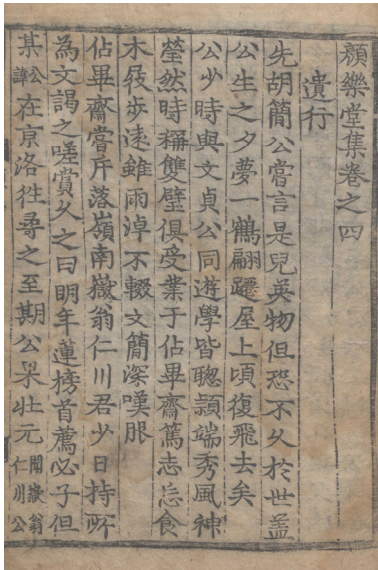 顔樂堂集卷之四
遺行
先胡簡公嘗言是兒英物但恐不久於世盖
公生之夕夢一鶴翩躚屋上頃復飛去矣
公少時與文貞公同遊學皆聦頴端秀風神
瑩然時稱雙壁俱受業于佔畢齋篤志忘食
木屐步遠雖雨淖不輟文簡深嘆服
佔畢齋嘗斥落嶺南嶽翁仁川君少日持所
為文謁之嗟賞久之曰明年蓮榜首薦必子但
某公諱在京洛徃尋之至期公果壯元聞嶽翁仁川公